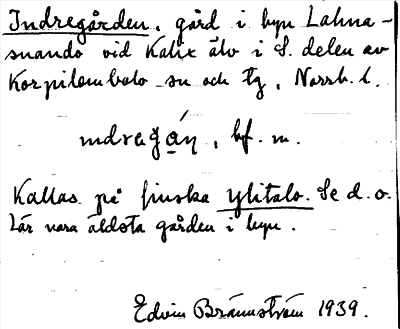 Indregården, gård i byn Lahna-
suando vid Kalix älv i S. delen av
Korpilombolo sn och tg, Norrb. l.
indregán, bf. m.
Kallas på finska Ylitalo. Se d. o.
Lär vara äldsta gården i byn.
Edvin Brännström 1939.